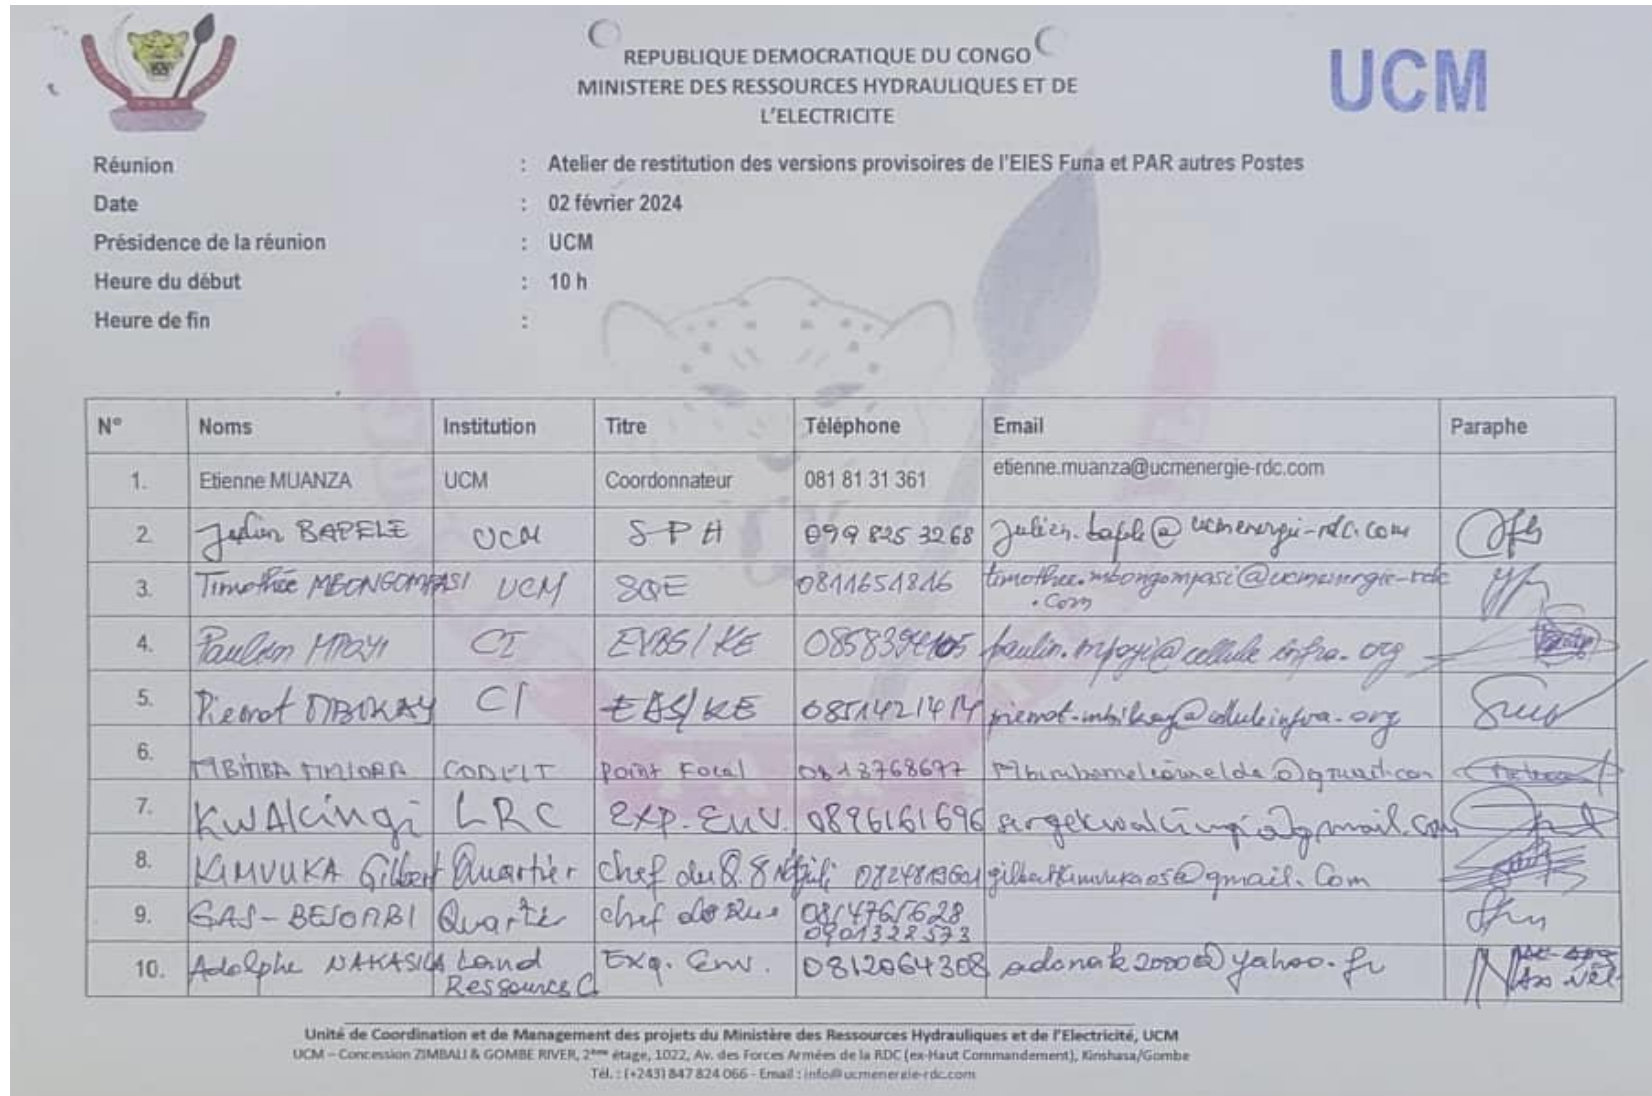 REPUBLIQUE DEMOCRATIQUE DU CONGO
MINISTERE DES RESSOURCES HYDRAULIQUES ET DE
L'ELECTRICITE
UCM
Réunion : Atelier de restitution des versions provisoires de l'EIES Funa et PAR autres Postes
Date : 02 février 2024
Présidence de la réunion : UCM
Heure du début : 10 h
Heure de fin :
N° Noms Institution Titre Téléphone Email Paraphe
1. Etienne MUANZA UCM Coordonnateur 081 81 31 361 etienne.muanza@ucmenergie-rdc.com
2. BAPELE UCM SPH 099 825 3268
3. Timothée MBONGOMPASI UCM SQE 0811651816 timothee.mbongompasi@ucmenergie-rdc
.com
4. Paulin MPOYI CI paulin.mpoyi@cellule infra.org
5. Pierrot CI EBS/KE 0851421414
6. Point Focal 0813768677
7. KWAKingi LRC Exp. Env. 0896161696
8. KIMVUKA Gilbert Quartier Chef du Q.
9. GAS-BESOMBI Quartier chef de Rue 0814765628
0901322573
10. Adolphe NAKASILA Land Exq. Env. 0812064308 adonak2000@yahoo.fr
Ressources C.
Unité de Coordination et de Management des projets du Ministère des Ressources Hydrauliques et de l'Electricité, UCM
UCM – Concession ZIMBALI & GOMBE RIVER, 2ème étage, 1022, Av. des Forces Armées de la RDC (ex-Haut Commandement), Kinshasa/Gombe
Tél. : (+243) 847 824 066 - Email : info@ucmenergie-rdc.com